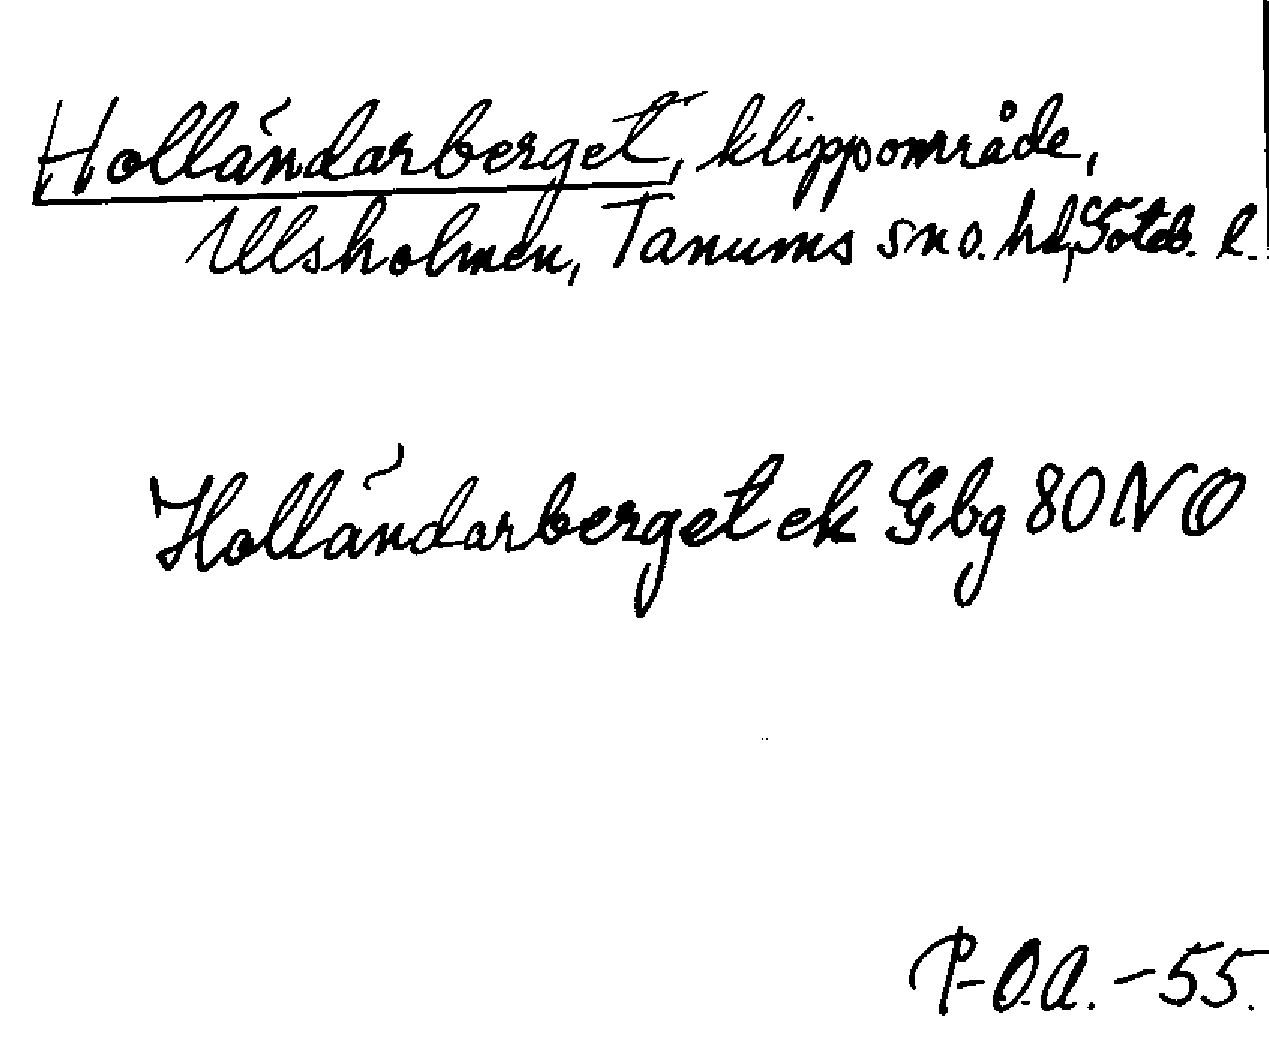 Holländarberget, klippområde,
Ulsholmen, Tanums sn o. hd, Göteb. l.
Holländarberget ek Gbg 80 NO
P-O.A. -55.